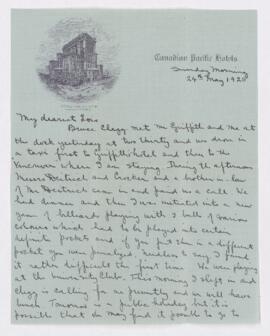 Canadian Pacific Hotels
Sunday Morning
24th May 1925
My dearest Lois
Bruce Clegg met Mr Griffith and me at
the dock yesterday at two thirty and we drove in
a taxi first to Griffith's hotel and then to the
Vancouver where I am staying. During the afternoon
Messrs and Crocker and a brother in law
of Mr came in and paid us a call. We
had dinner and then I was initiated into a new
game of billiards playing with balls of various
colours which had to be played into certain
definite pockets and if you put them in a different
pocket you were penalized, needless to say I found
it rather difficult the first time. We were playing
at the University Club. This morning I slept in and
Clegg is calling for me presently and we will have
lunch. Tomorrow is a public holiday but it is
possible that we may find it possible to go to